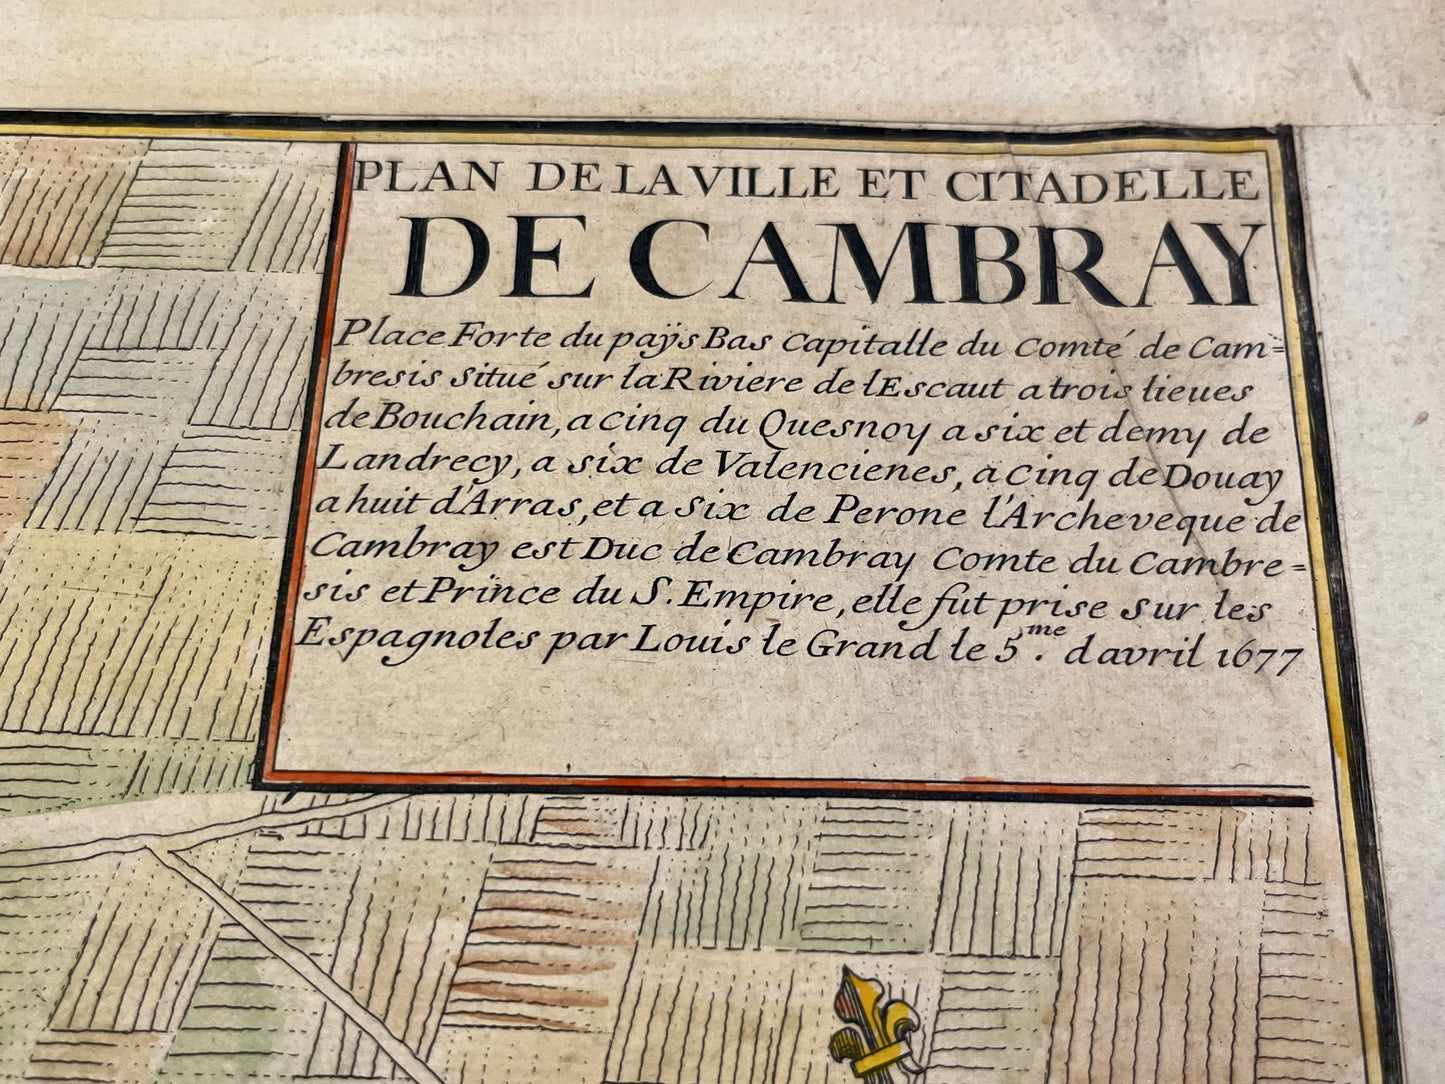 PLAN DE LA VILLE ET CITADELLE
DE CAMBRAY
Place Forte du paÿs Bas Capitalle du Comté de Cam=
bresis Situé sur la Riviere de lEscaut a trois lieues
de Bouchain, a cinq du Quesnoy a six et demy de
Landrecy, a six de Valencienes, a cinq de Douay
a huit d'Arras, et a Six de Perone l'Archeveque de
Cambray est Duc de Cambray Comte du Cambre=
sis et Prince du S. Empire, elle fut prise sur les
Espagnoles par Louis le Grand le 5.me d avril 1677